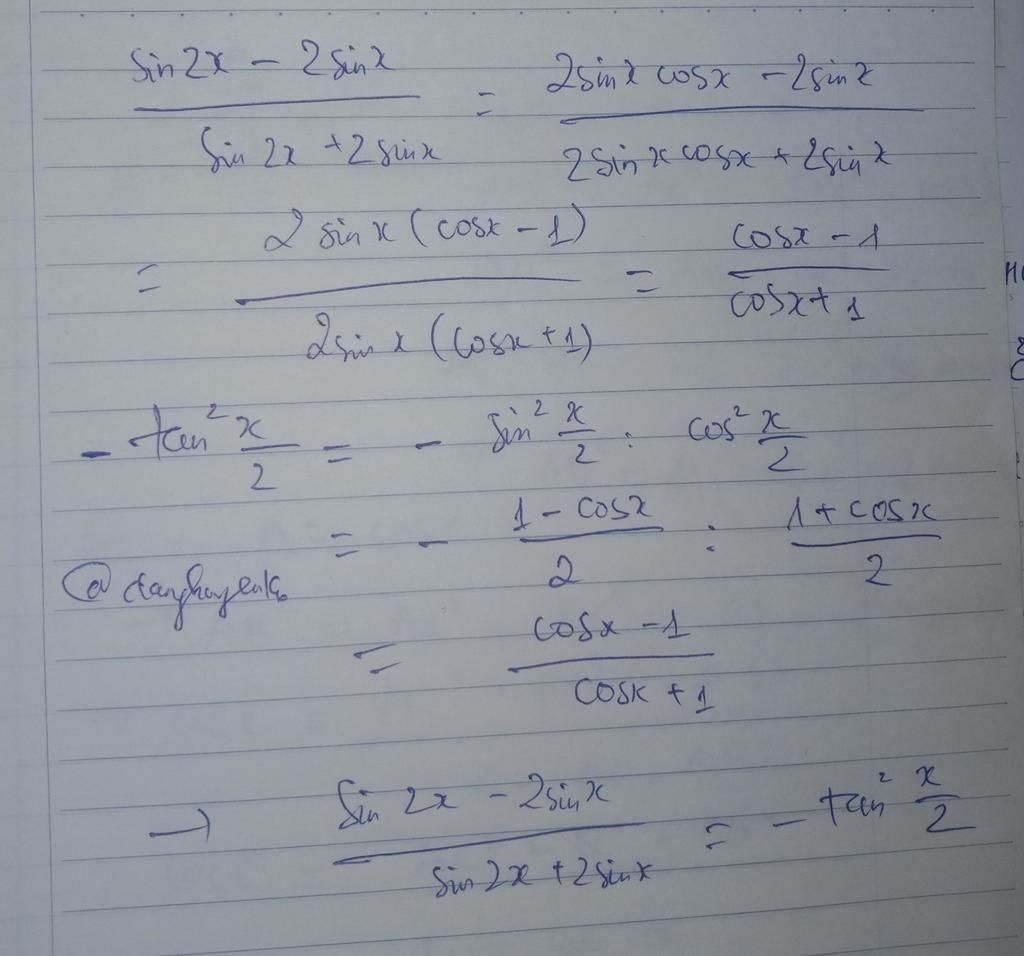 (sin2x - 2sinx)/(sin2x + 2sinx) = (2sinx cosx - 2sinx)/(2sinx cosx + 2sinx)
= (2sinx(cosx - 1))/(2sinx(cosx + 1)) = (cosx - 1)/(cosx + 1)
- tan² x/2 = - sin² x/2 : cos² x/2
= - (1 - cosx)/2 : (1 + cosx)/2
= (cosx - 1)/(cosx + 1)
→ (sin2x - 2sinx)/(sin2x + 2sinx) = - tan² x/2